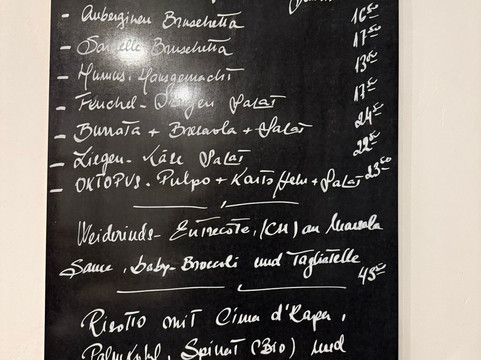 - Auberginen Bruschetta 16 50
- Sardelle Bruschetta 17 50
- Humus-Hausgemacht 13 50
- Fenchel-Orangen Salat 17 50
- Burrata + Bresaola + Salat 24 50
- Ziegen-Käse Salat 22 50
- OKTOPUS-Pulpo + Kartoffeln + Salat 23 50
Weiderinds-Entrecôte, (CH) an Marsala
Sauce, baby-Broccoli und Tagliatelle
45 50
Risotto mit Cima d'Rapa,
Palmkohl, Spinat (Bio) und